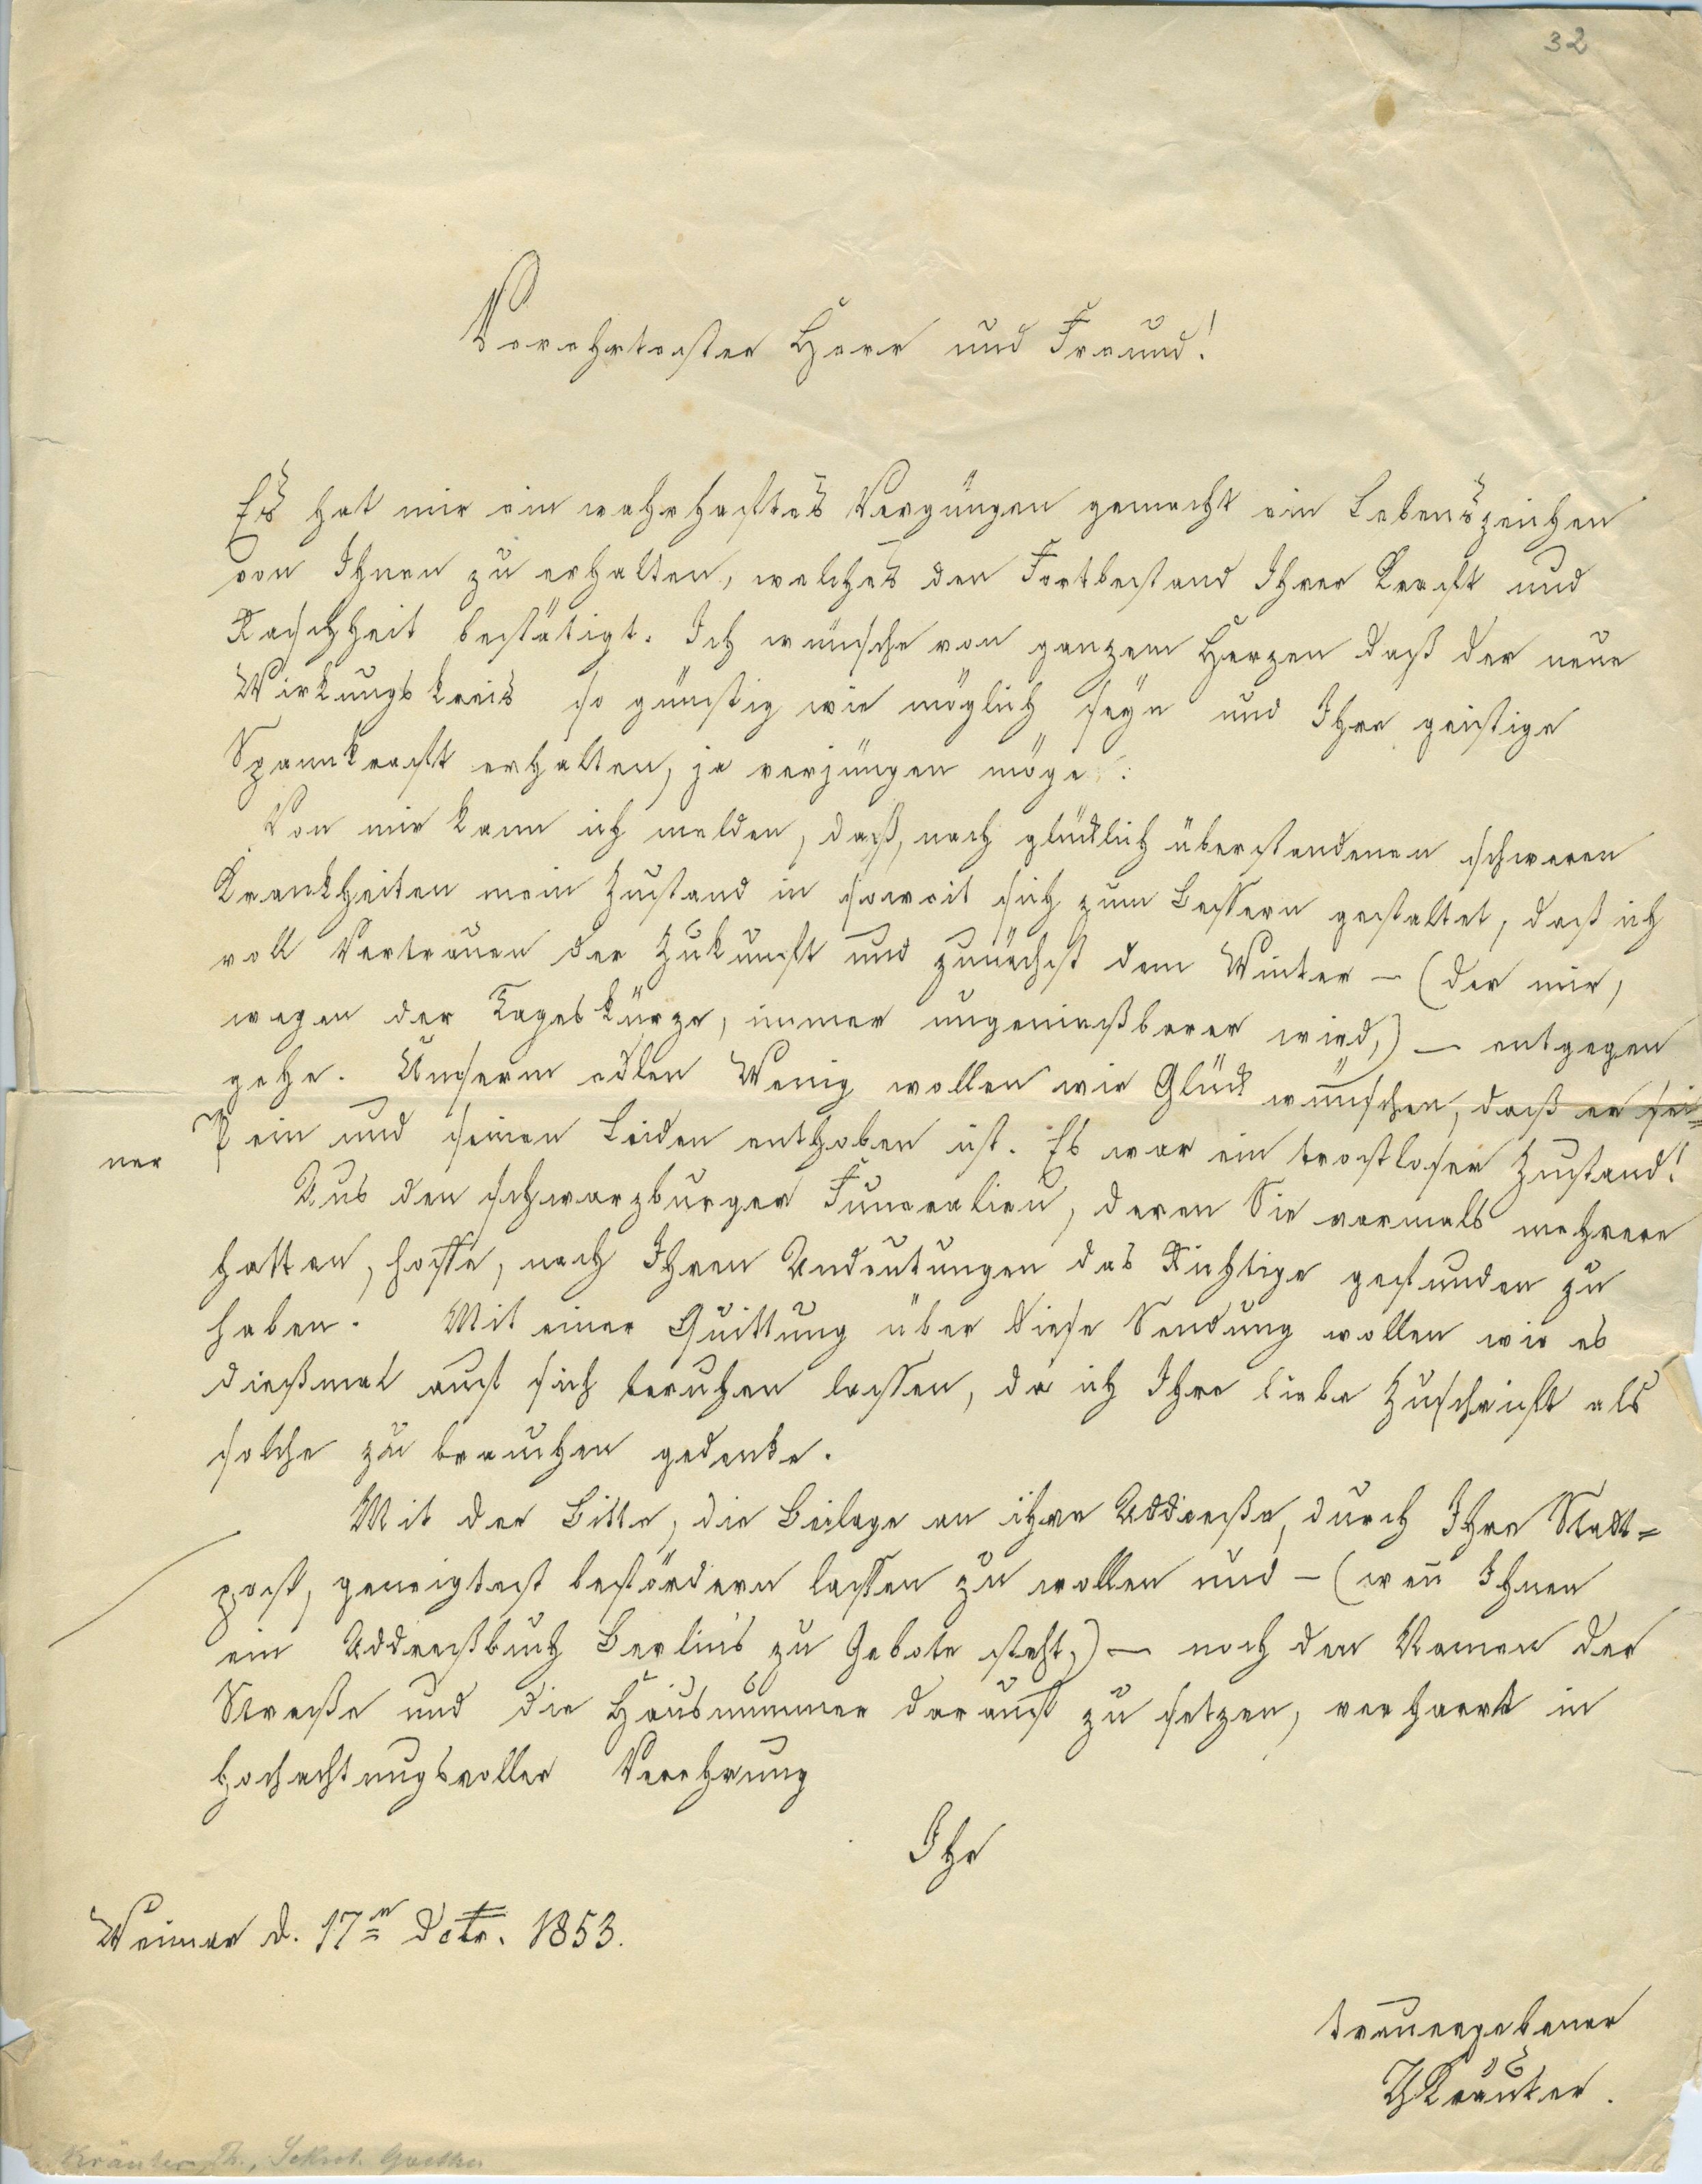 32
Verehrtester Herr und Freund!
Es hat mir ein wahrhaftes Vergnügen gemacht ein Lebenszeichen
von Ihnen zu erhalten, welches den Fortbestand Ihrer Kraft und
Raschheit bestätigt. Ich wünsche von ganzem Herzen daß der neue
Wirkungskreis so günstig wie möglich seyn und Ihre geistige
Spannkraft erhalten, ja verjüngen möge.
Von mir kann ich melden, daß, nach glücklich überstandenen schweren
Krankheiten mein Zustand in soweit sich zum Bessern gestaltet, daß ich
voll Vertrauen der Zukunft und zunächst dem Winter – (der mir,
wegen der Tageskürze, immer ungenießbarer wird,) – entgegen
gehe. Unserm edlen Wenig wollen wir Glück wünschen, daß er sei=
ner Pein und seinen Leiden enthoben ist. Es war ein trostloser Zustand!
Aus den schwarzburger Funeralien, deren Sie vormals mehrere
hatten, hoffe, nach Ihren Andeutungen das Richtige gefunden zu
haben. Mit einer Quittung über diese Sendung wollen wir es
dießmal auf sich beruhen lassen, da ich Ihre liebe Zuschrift als
solche zu brauchen gedenke.
Mit der Bitte, die Beilage an ihre Addreße, durch Ihre Stadt=
post, geneigtest befördern lassen zu wollen und – (wen̄ Ihnen
ein Addreßbuch Berlin's zu Gebote steht,) – noch den Namen der
Straße und die Hausnummer darauf zu setzen, verharrt in
hochachtungsvoller Verehrung
Ihr
Weimar d. 17n Octr. 1853.
treuergebener
ThKräuter.
Kräuter, Th., Sekret. Goethes